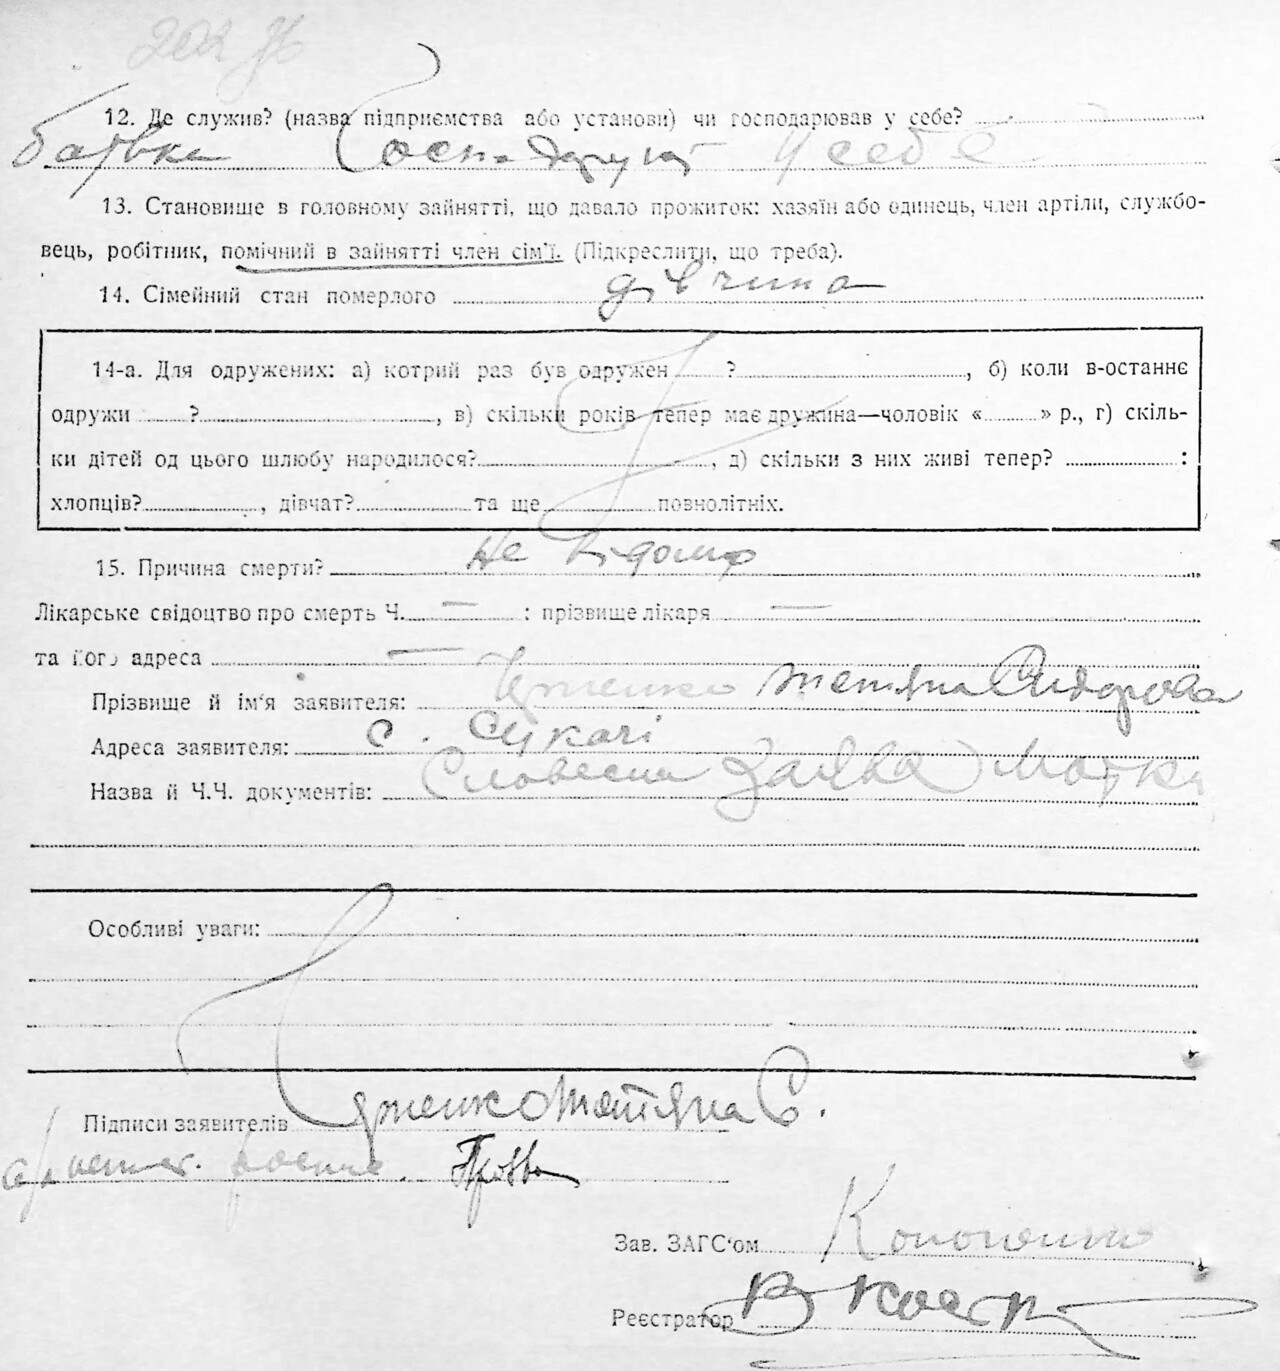 12. Де служив? (назва підприємства або установи) чи господарював у себе?
батька Господарує у себе
13. Становище в головному зайнятті, що давало прожиток: хазяїн або одинець, член артіли, службо-
вець, робітник, помічний в зайнятті член сім'ї. (Підкреслити, що треба).
14. Сімейний стан померлого дівчина
14-а. Для одружених: а) котрий раз був одружен ? , б) коли в-останнє
одружи ? , в) скільки років тепер має дружина—чоловік « » р., г) скіль-
ки дітей од цього шлюбу народилося? , д) скільки з них живі тепер? :
хлопців? , дівчат? та ще повнолітніх.
15. Причина смерти? Не відомо
Лікарське свідоцтво про смерть Ч. — : прізвище лікаря —
та його адреса —
Прізвище й ім'я заявителя: Тетяна Сидорова
Адреса заявителя: с. Сукачі
Назва й Ч.Ч. документів: Словесна Заява Матки
Особливі уваги:
Підписи заявителів Тетяна С.
Зав. ЗАГС'ом Кононенко
Реєстратор